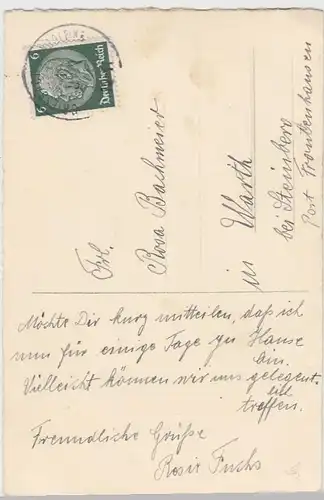 6
6
Deutsches Reich
Frl.
Rosa Bachmeier
in Warth
bei Steinberg
Post Frauenhausen
Möchte Dir kurz mitteilen, daß ich
nun für einige Tage zu Hause
bin.
Vielleicht können wir uns gelegent-
lich
treffen.
Freundliche Grüße
Rosie Fuchs